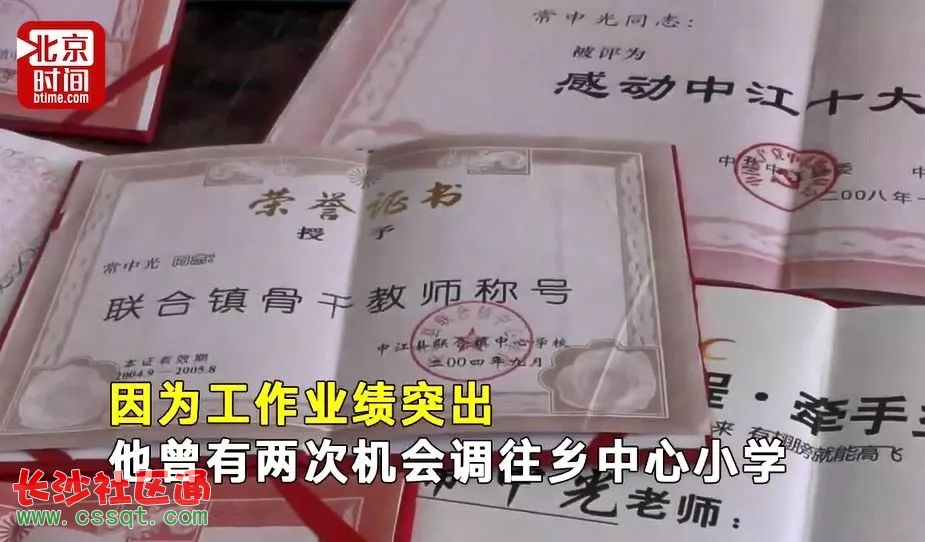 北京
时间
btime.com
常中光同志:
被评为
感动中江十大
二00八年一
荣誉证书
授予
常中光 同志:
联合镇骨干教师称号
本证有效期
2004.9—2005.8
中江县联合镇中心学校
二00四年九月
程·牵手
来 有翅膀就能高飞
中光老师:
因为工作业绩突出
他曾有两次机会调往乡中心小学
长沙社区通
www.cssqt.com